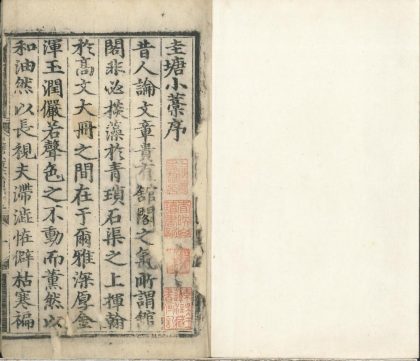 圭塘小藁序
昔人論文章貴有館閣之氣所謂館
閣非必掞藻於青瑣石渠之上揮翰
於高文大冊之間在于爾雅深厚金
渾玉潤儼若聲色之不動而薰然以
和油然以長視夫滯澁恠僻枯寒褊